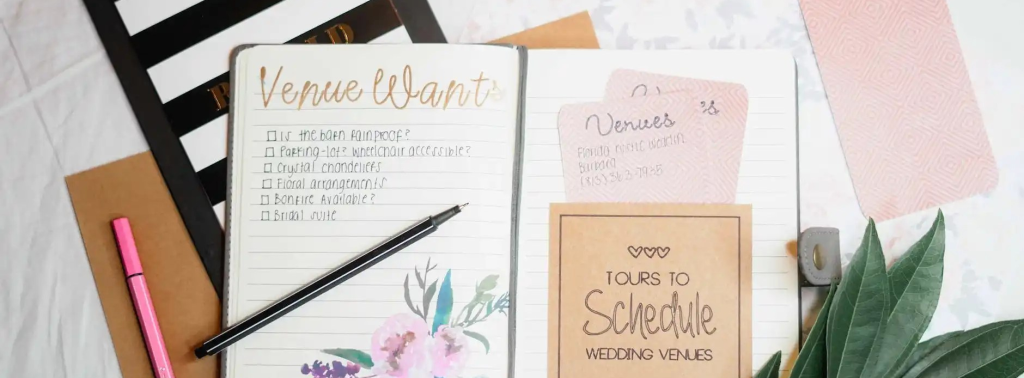 Venue Wants
Is the barn rainproof?
Parking-lot? Wheelchair accessible?
Crystal chandeliers
Floral arrangements
Bonfire Available?
Bridal suite
Venues
Florida
Barbara
TOURS TO
Schedule
WEDDING VENUES